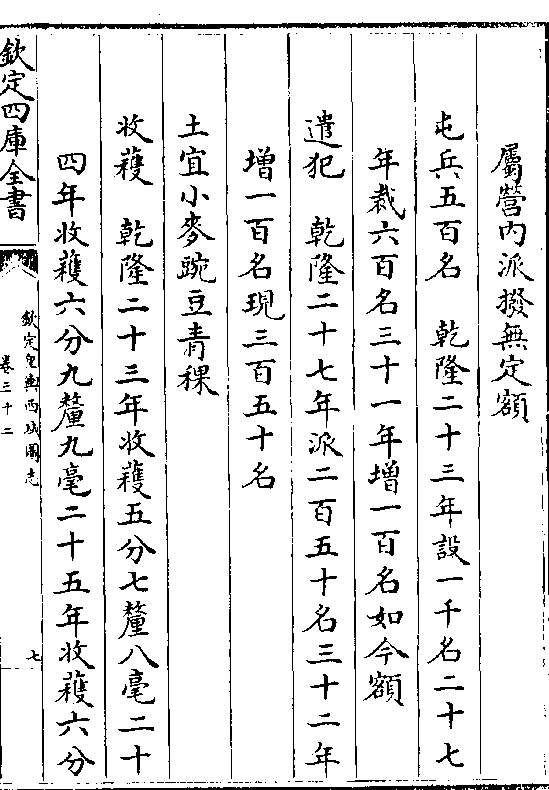 屬營内派撥無定額
屯兵五百名　乾隆二十三年設一千名二十七
年裁六百名三十一年增一百名如今額
遣犯　乾隆二十七年派二百五十名三十二年
增一百名現三百五十名
土宜小麥豌豆青稞
收穫　乾隆二十三年收穫五分七釐八毫二十
四年收穫六分九釐九毫二十五年收穫六分
欽定四庫全書
欽定皇輿西域圖志
卷三十二
七